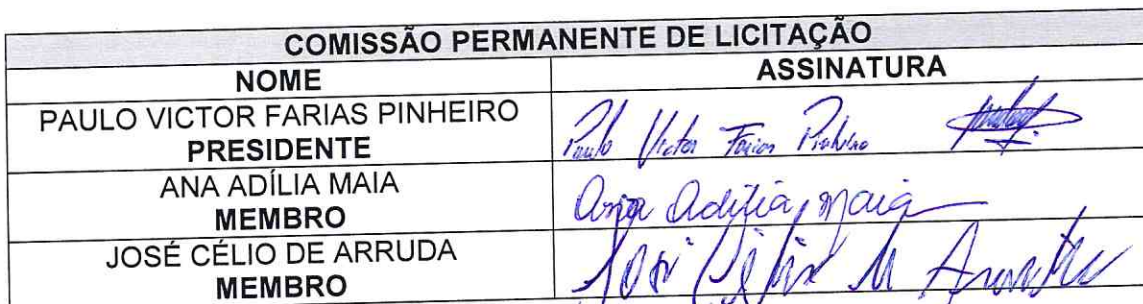 COMISSÃO PERMANENTE DE LICITAÇÃO
NOME ASSINATURA
PAULO VICTOR FARIAS PINHEIRO
PRESIDENTE Paulo Victor Farias Pinheiro
ANA ADÍLIA MAIA
MEMBRO Ana Adília Maia
JOSÉ CÉLIO DE ARRUDA
MEMBRO José Célio d Arruda